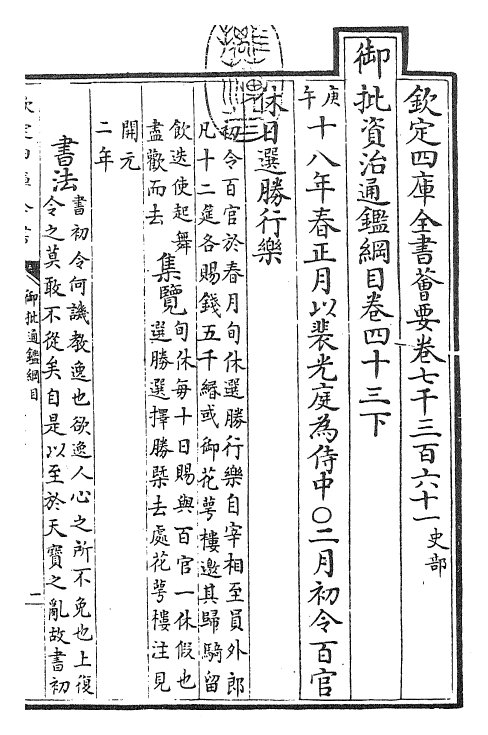 欽定四庫全書薈要卷七千三百六十一史部
御批資治通鑑綱目卷四十三下
庚午十八年春正月以裴光庭為侍中○二月初令百官
休日選勝行樂
初令百官於春月旬休選勝行樂自宰相至員外郎
凡十二筵各賜錢五千緡或御花萼樓邀其歸騎留
飲迭使起舞
盡歡而去
集覽
旬休每十日賜與百官一休假也
選勝選擇勝槩去處花萼樓注見
開元
二年
書法
書初令何譏教逸也欲逸人心之所不免也上復
令之莫敢不從矣自是以至於天寶之亂故書初
御批通鑑綱目